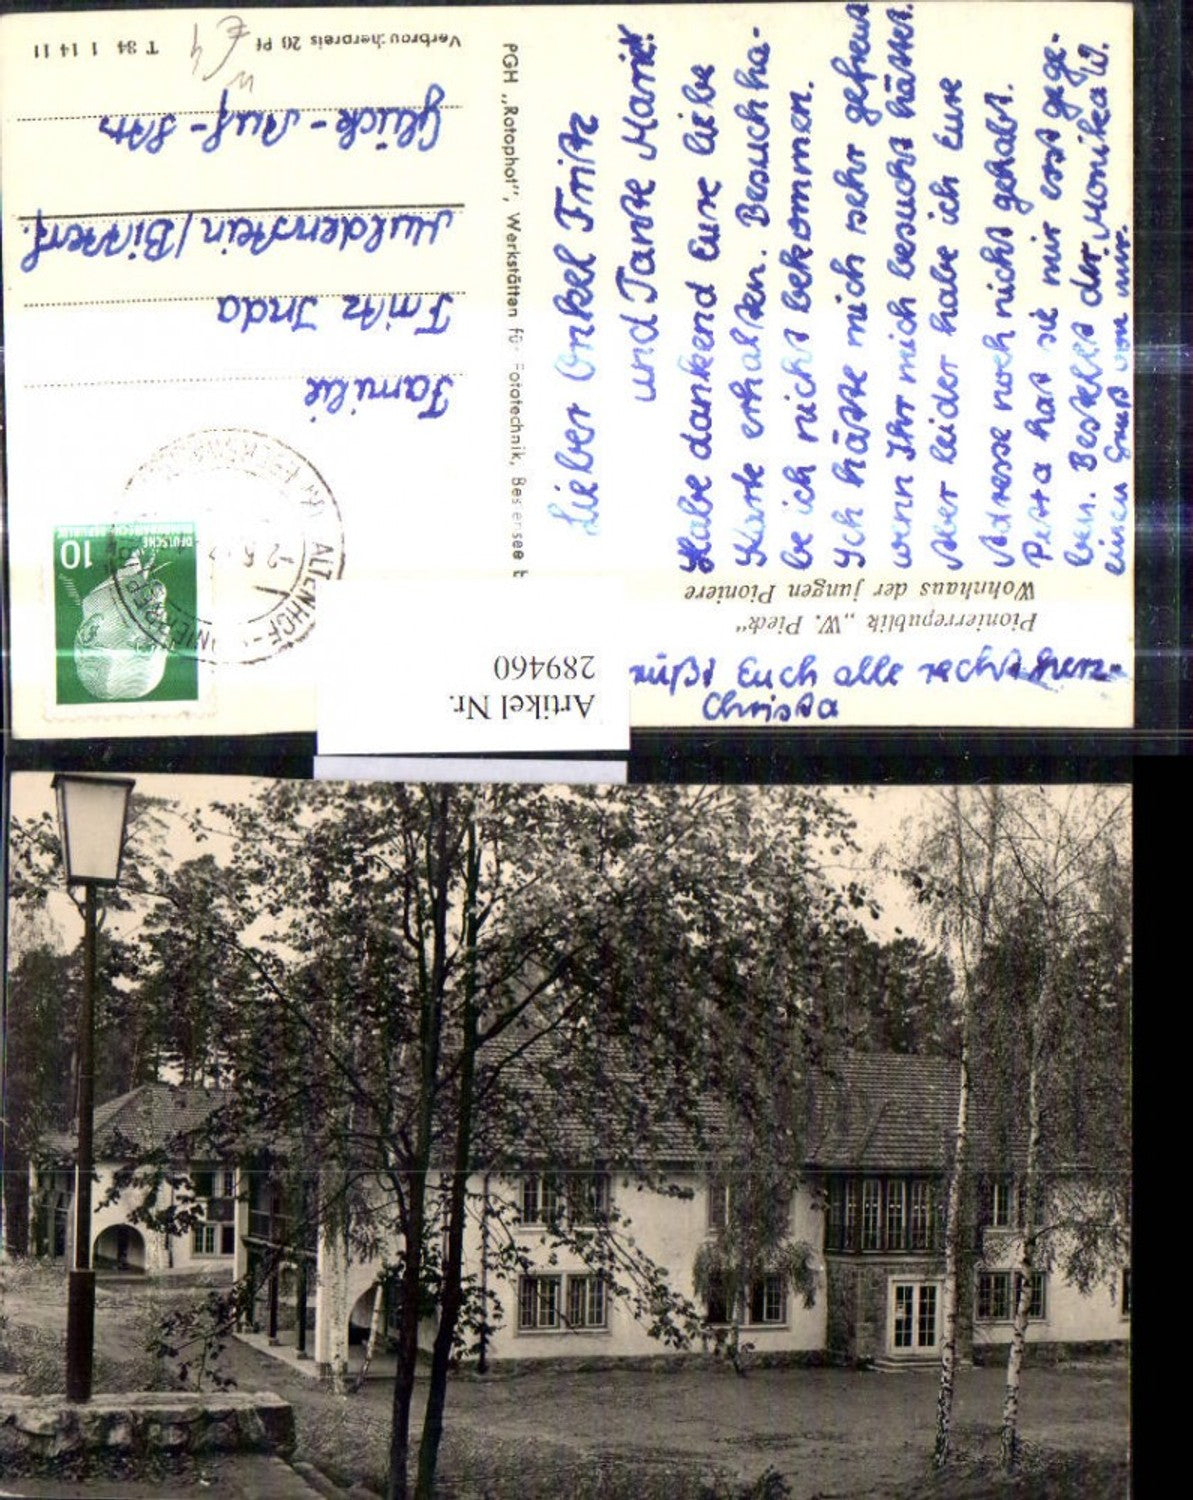 Lieber Onkel Fritz
und Tante Marie!
Habe dankend Eure liebe
Karte erhalten. Besuch ha-
be ich nicht bekommen.
Ich hätte mich sehr gefreut
wenn Ihr mich besucht hättet.
Aber leider habe ich Eure
Adresse noch nicht gehabt.
Petra hat sie mir erst gege-
ben. Bestellt der Monika W.
einen Gruß von mir.
grüßt Euch alle recht herz-
Christa
Pionierrepublik „W. Pieck“
Wohnhaus der jungen Pioniere
PGH „Rotophot“, Werkstätten für Fototechnik, Bestensee
Familie
Fritz Inda
Muldenstein/Bitterf.
Glück-Auf-Str.
Verbraucherpreis 20 Pf
T 84 1 14 11
€ 4
10
DEUTSCHE
DEMOKRATISCHE REPUBLIK
ALTENHOF
-2.6.
Artikel Nr.
289460